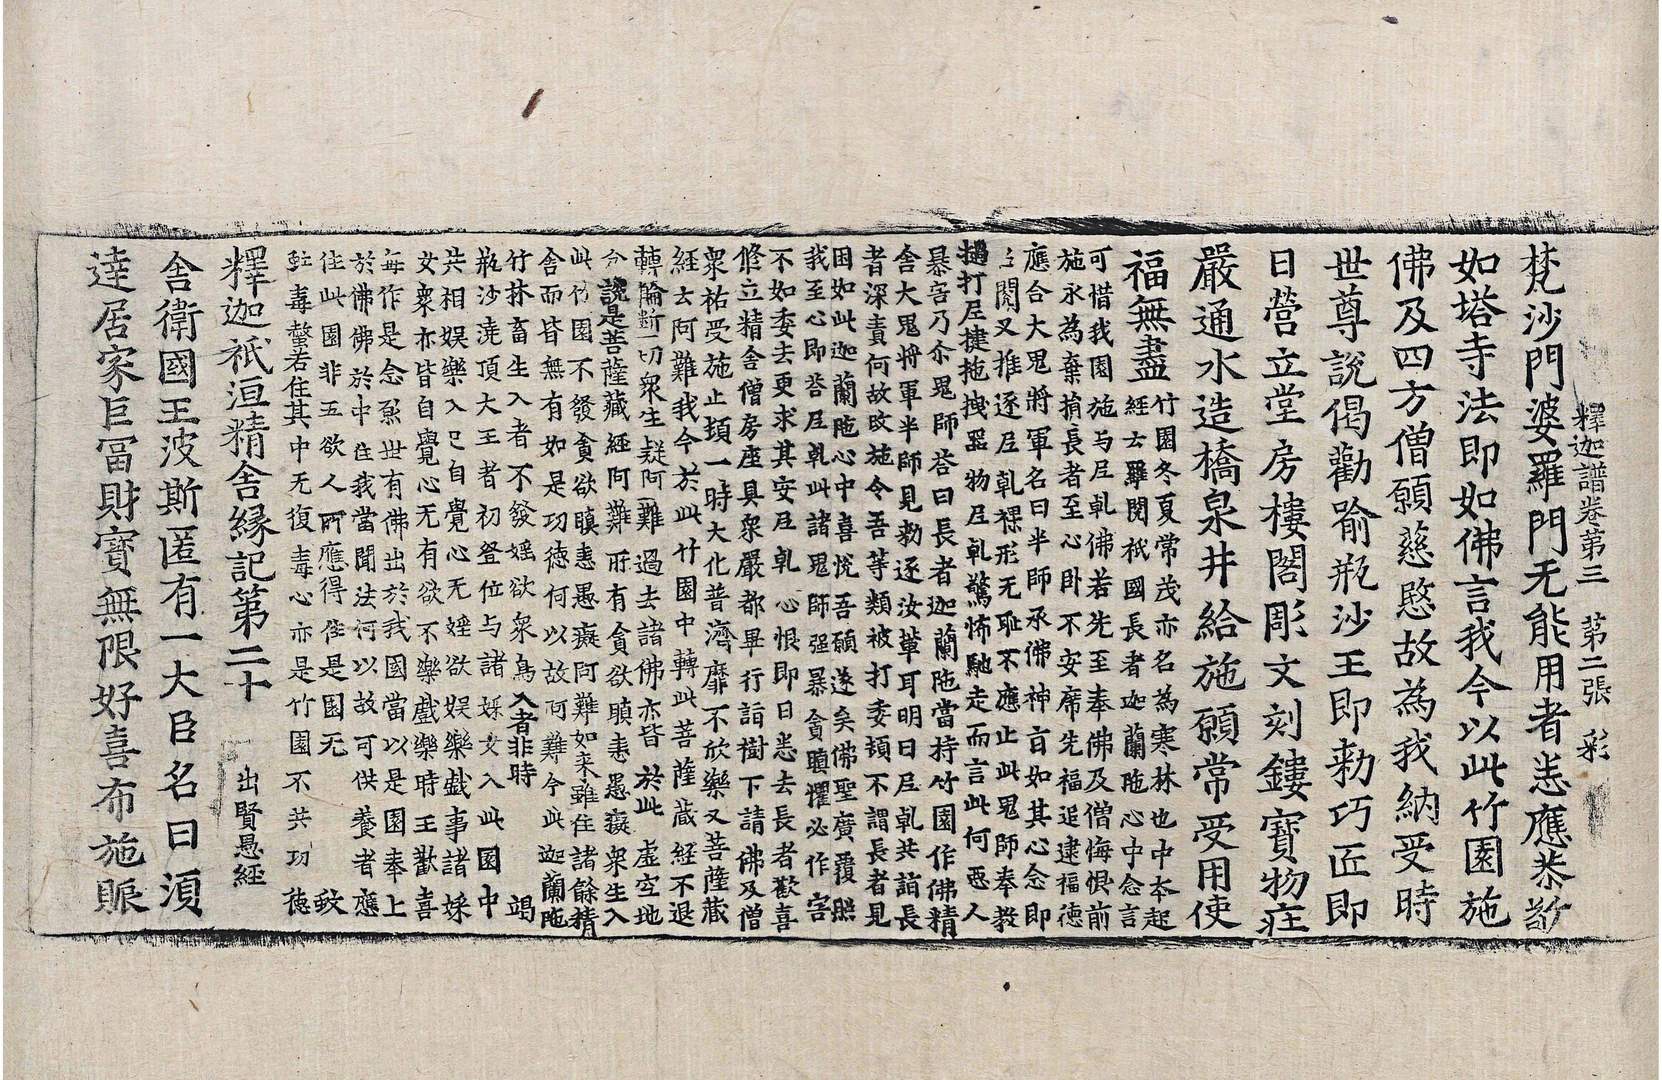 釋迦譜卷第三　第二張　彩
梵沙門婆羅門无能用者悉應恭敬
如塔寺法即如佛言我今以此竹園施
佛及四方僧願慈愍故為我納受時
世尊說偈勸喻瓶沙王即勑巧匠即
日營立堂房樓閣彫文刻鏤寶物庄
嚴通水造橋泉井給施願常受用使
福無盡
竹園冬夏常茂亦名為寒林也中夲起
經云羅閱祇國長者迦蘭陁心中念言
可惜我園施与尼乹佛若先至奉佛及僧悔恨前
施永為棄捐長者至心卧不安席先福追逮福德
應合大鬼將軍名曰半師承佛神言如其心念即
閱叉推逐尼乹裸形无耻不應止此鬼師奉教
撾打尼揵拖拽器物尼乹驚怖馳走而言此何惡人
暴害乃尒鬼師荅曰長者迦蘭陁當持竹園作佛精
舍大鬼將軍半師見勑逐汝輩耳明日尼乹共詣長
者深責何故改施令吾等類被打委頓不謂長者見
困如此迦蘭陁心中喜悅吾願遂矣佛聖廣覆照
我至心即荅尼乹此諸鬼師强暴貪瞋懼必作害
不如委去更求其安尼乹心恨即日恚去長者歡喜
修立精舍僧房座具衆嚴都畢行詣樹下請佛及僧
衆祐受施止頓一時大化普濟靡不欣樂又菩薩藏
經云阿難我今於此竹園中轉此菩薩藏經不退
轉輪斷一切衆生疑阿難過去諸佛亦皆於此虛空地
分說是菩薩藏經阿難所有貪欲瞋恚愚癡衆生入
此竹園不發貪欲瞋恚愚癡阿難如来雖住諸餘精
舍而皆無有如是功德何以故阿難今此迦蘭陁
竹林畜生入者不發婬欲衆鳥入者非時 鳴
瓶沙澆頂大王者初登位与諸婇女入此園中
共相娛樂入已自覺心无婬欲娛樂戲事諸婇
女衆亦皆自覺心无有欲不樂戲樂時王歡喜
每作是念願世有佛出於我國當以是園奉上
於佛佛於中住我當聞法何以故可供養者應
住此園非五欲人所應得住是園无 蚖
虵毒螫若住其中无復毒心亦是竹園不共功 德
釋迦祇洹精舍緣記第二十　出賢愚經
舍衛國王波斯匿有一大臣名曰湏
達居家巨冨財寶無限好喜布施賑